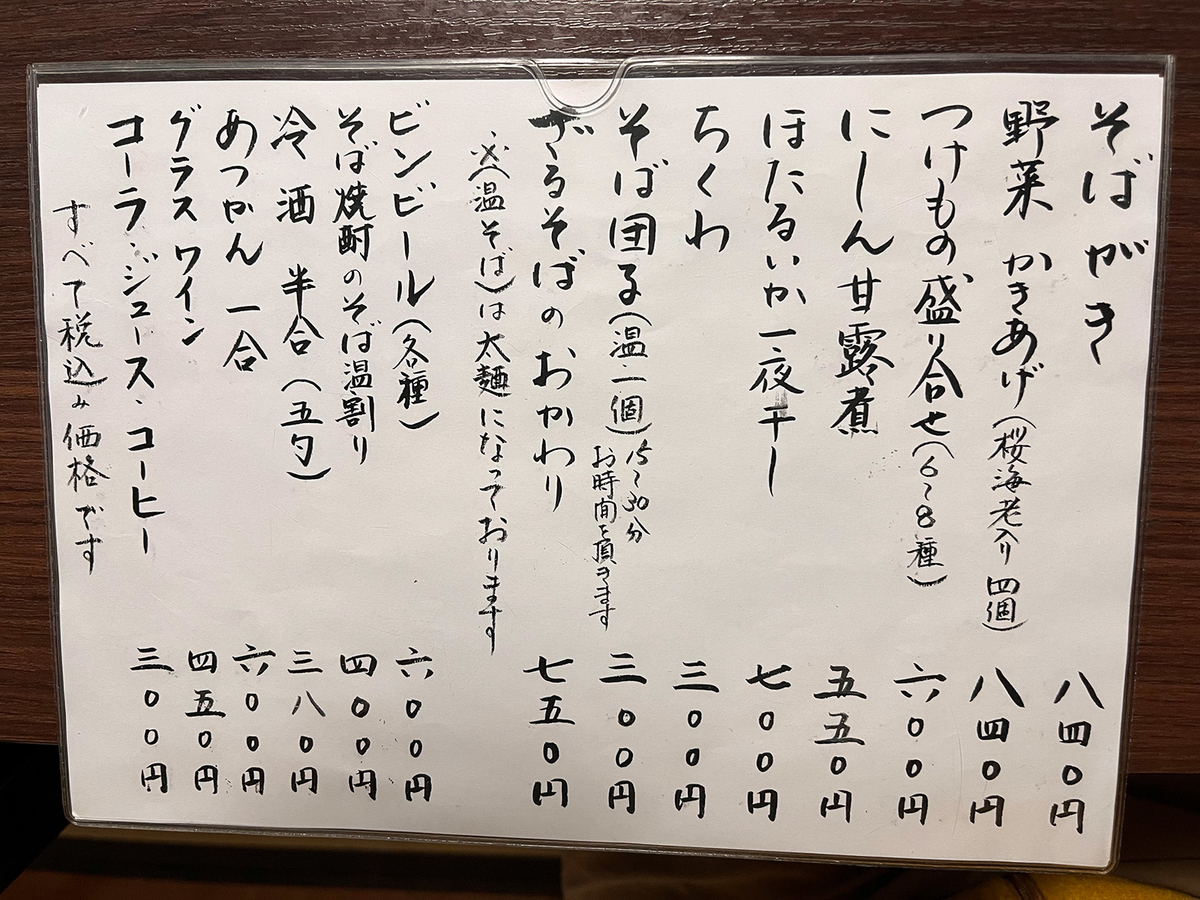 そばがき 八四〇円
野菜かきあげ(桜海老入り四個) 八四〇円
つけもの盛り合せ(6〜8種) 六〇〇円
にしん甘露煮 五五〇円
ほたるいか一夜干し 七〇〇円
ちくわ 三〇〇円
そば団子(温一個)15〜30分お時間を頂きます 三〇〇円
ざるそばのおかわり 七五〇円
※(温そば)は太麺になっております
ビンビール(各種) 六〇〇円
そば焼酎のそば湯割り 四〇〇円
冷酒 半合(五勺) 三八〇円
あつかん 一合 六〇〇円
グラスワイン 四五〇円
コーラ・ジュース・コーヒー 三〇〇円
すべて税込み価格です